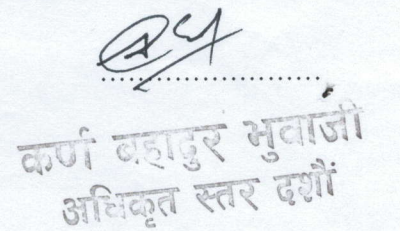 ....................
कर्ण बहादुर भुवाजी
अधिकृत स्तर दशौं